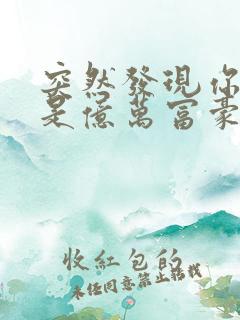 突然發現你
是億萬富豪
收紅包的
未經同意禁止轉載